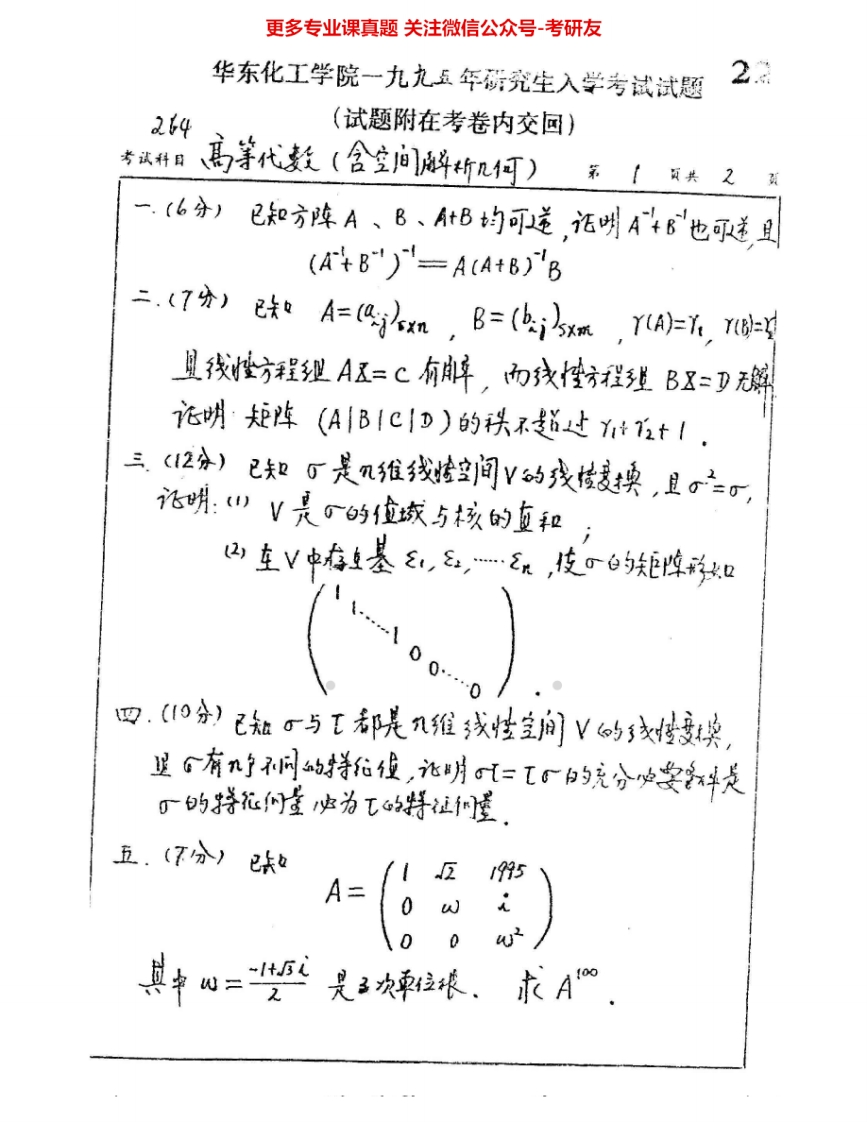 更多专业课真题 关注微信公众号-考研友
华东化工学院一九九五年研究生入学考试试题 22
(试题附在考卷内交回)
264
考试科目 高等代数(含空间解析几何) 第 1 页共 2 页
一.(6分) 已知方阵A、B、A+B均可逆,证明A⁻¹+B⁻¹也可逆,且
(A⁻¹+B⁻¹)⁻¹=A(A+B)⁻¹B
二.(7分) 已知 A=(aᵢⱼ)ₛₓₙ, B=(bᵢⱼ)ₛₓₘ, γ(A)=γ₁, γ(B)=γ₂
且线性方程组AX=C有解,而线性方程组BX=D无解
证明:矩阵(A|B|C|D)的秩不超过γ₁+γ₂+1.
三.(12分) 已知σ是n维线性空间V的线性变换,且σ²=σ,
证明:(1) V是σ的值域与核的直和;
(2) 在V中存在基ε₁,ε₂,……εₙ,使σ的矩阵形如
1
1
⋱
1
0
0
⋱
0 .
四.(10分) 已知σ与τ都是n维线性空间V的线性变换,
且σ有n个不同的特征值,证明στ=τσ的充分必要条件是
σ的特征向量必为τ的特征向量.
五.(7分) 已知
A=
1 √2 1995
0 ω i
0 0 ω²
其中ω=(-1+√3i)/2 是3次单位根、求A¹⁰⁰.